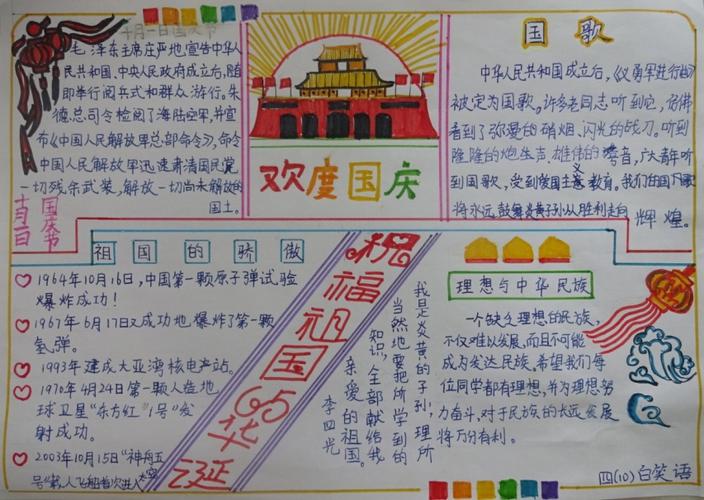 十月一日国庆节
毛泽东主席庄严地宣告中华人
民共和国,中央人民政府成立后,随
即举行阅兵式和群众游行。朱
德总司令检阅了海陆空军,并宣
布《中国人民解放军总部命令》,命令
中国人民解放军迅速肃清国民党
一切残余武装,解放一切尚未解放的
国土。
十月一日
国庆节
欢度国庆
国歌
中华人民共和国成立后,《义勇军进行曲》
被定为国歌。许多老同志听到它,仿佛
看到了弥漫的硝烟、闪光的战刀。听到
隆隆的炮生声,雄伟的声音,广大青年听
到国歌,受到爱国主义教育。我们在国下歌
将永远鼓舞炎黄子孙从胜利走向
辉煌。
祖国的骄傲
1964年10月16日,中国第一颗原子弹试验
爆炸成功!
1967年6月17日又成功地爆炸了第一颗
氢弹。
1993年建成大亚湾核电产站。
1970年4月24日第一颗人造地
球卫星“东方红1号”发
射成功。
2003年10月15日“神舟五
号”载人飞船首次进入太空
祝福祖国65华诞
我是炎黄的子孙,理所
当然地要把所学到的
知识,全部献给我
亲爱的祖国。
李四光
理想与中华民族
一个缺乏理想的民族,
不仅难以发展,而且不可能
成为发达民族。希望我们每
位同学都有理想,并为理想努
力奋斗,对于民族的长远发展
将万分有利。
四(10)白笑语